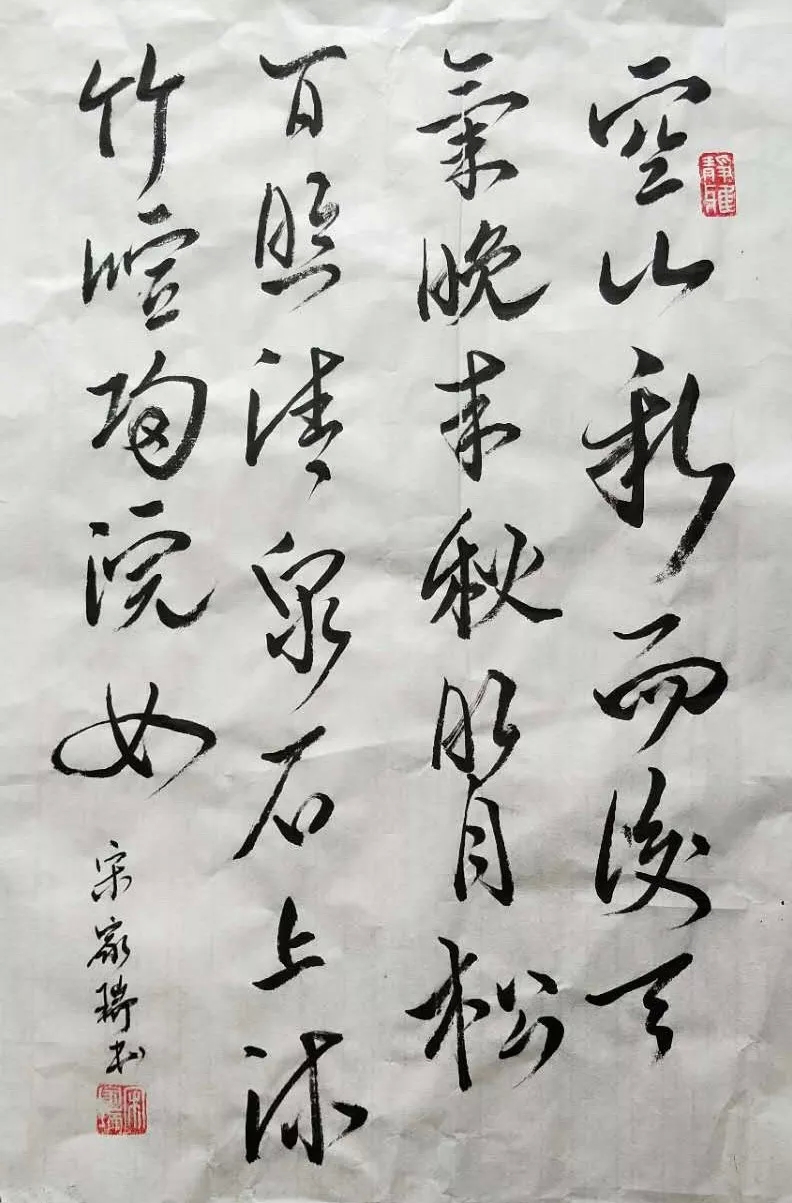 靜雅
空山新雨後天
氣晚来秋明月松
間照清泉石上流
竹喧歸浣女
宋家瑞书